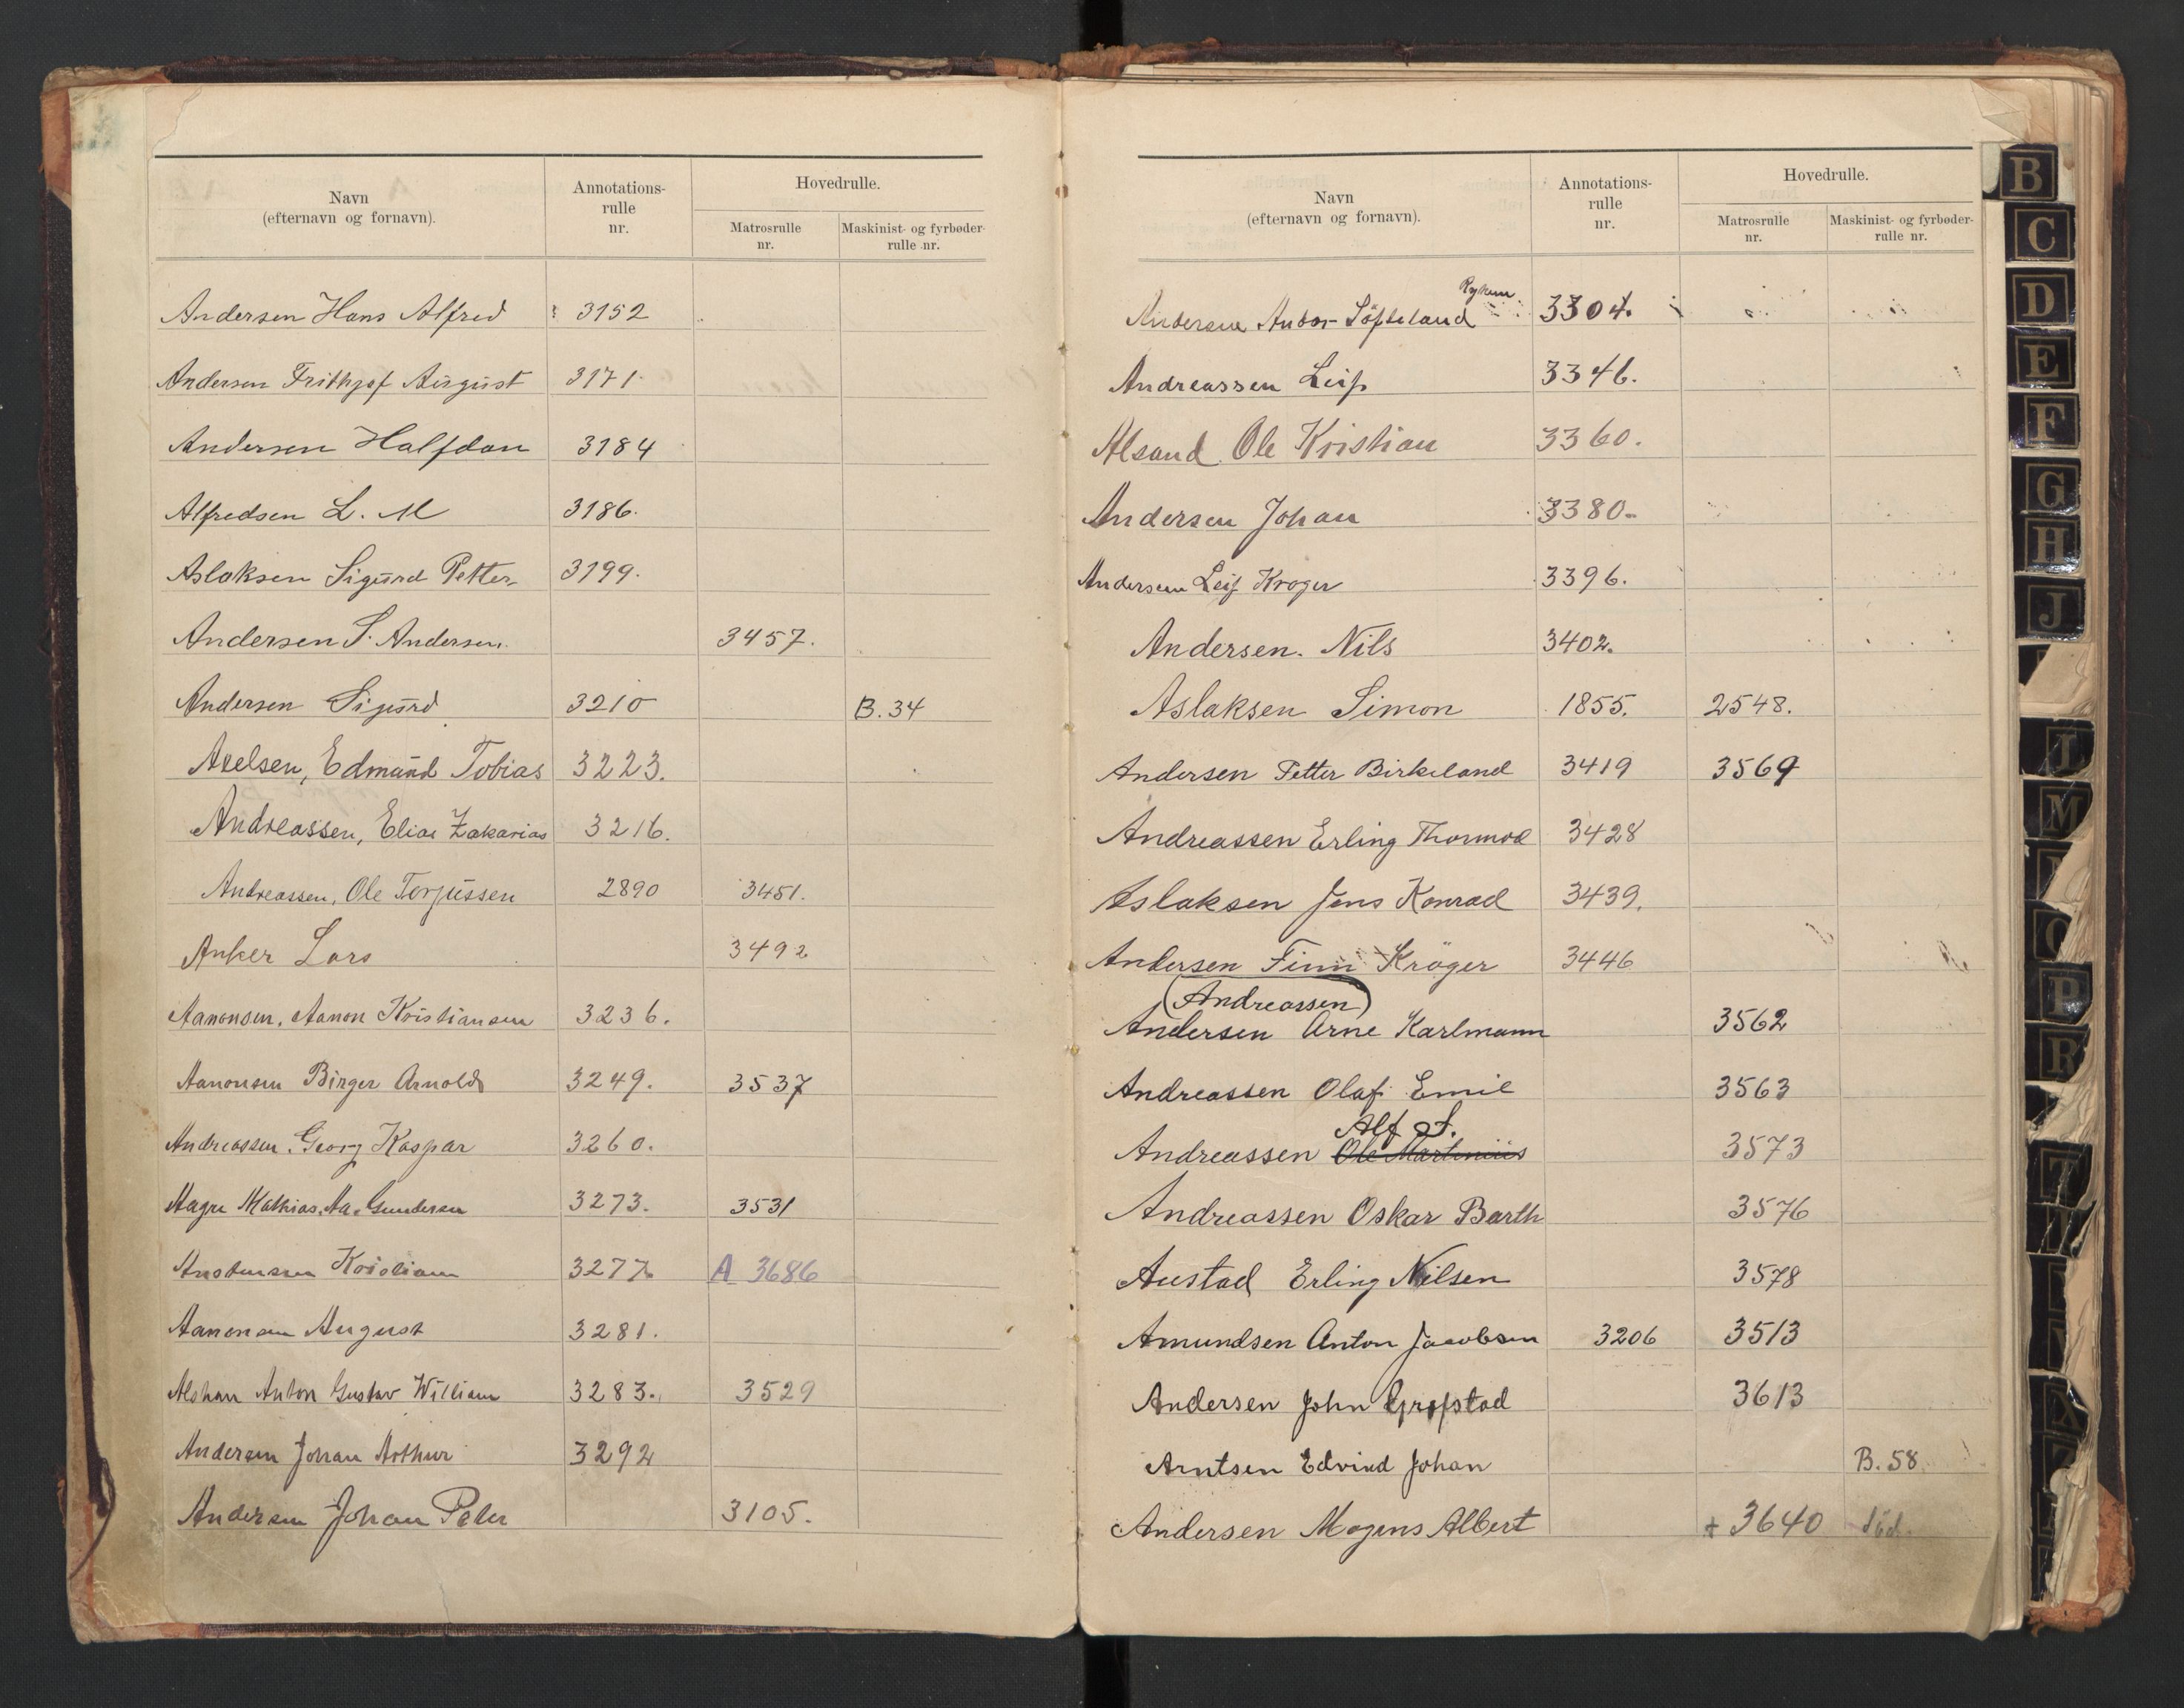 Navn
(efternavn og fornavn).
Annotations-
rulle
nr.
Hovedrulle.
Matrosrulle
nr.
Maskinist- og fyrbøder-
rulle nr.
Andersen Hans Alfred 3152
Andersen Frithjof August 3171.
Andersen Halfdan 3184
Alfredsen L. M 3186.
Aslaksen Sigurd Petter 3199.
Andersen S. Andersen. 3457.
Andersen Sigurd 3210 B. 34
Axelsen, Edmund Tobias 3223.
Andreassen, Elias Zakarias 3216.
Andreassen, Ole Torjussen 2890 3451.
Anker Lars 3492
Aanonsen, Aanon Kristiansen 3236.
Aanonsen Birger Arnold 3249. 3537
Andreassen, Georg Kaspar 3260.
Aagre Mathias Aa. Gundersen 3273. 3531
Kristian 3277. A 3686
Aanonsen August 3281.
Anton Gustav William 3283. 3529
Andersen Johan Arthur 3292
Andersen Johan Peter 3105.
Navn
(efternavn og fornavn).
Annotations-
rulle
nr.
Hovedrulle.
Matrosrulle
nr.
Maskinist- og fyrbøder-
rulle nr.
Andersen 3304.
Andreassen Leif 3346.
Alsand Ole Kristian 3360.
Andersen Johan 3380.
Andersen Leif Kroger 3396.
Andersen. Nils 3402.
Aslaksen Simon 1855. 2548.
Andersen Petter Birkeland 3419 3569
Andreassen Erling Thormod 3428
Aslaksen Jens Konrad 3439.
Andersen Finn Kröger 3446
(Andreassen)
Andersen Arne Karlmann 3562
Andreassen Olaf Emil 3563
Alf
Andreassen Ole Martinius 3573
Andreassen Oskar Barth 3576
Austad Erling Nilsen 3578
Amundsen Anton Jacobsen 3206 3513
Andersen John 3613
Arntsen Edvind Johan B. 58.
Andersen Mogens Albert + 3640 död.
B
C
D
E
F
G
H
J
M
P
R
T